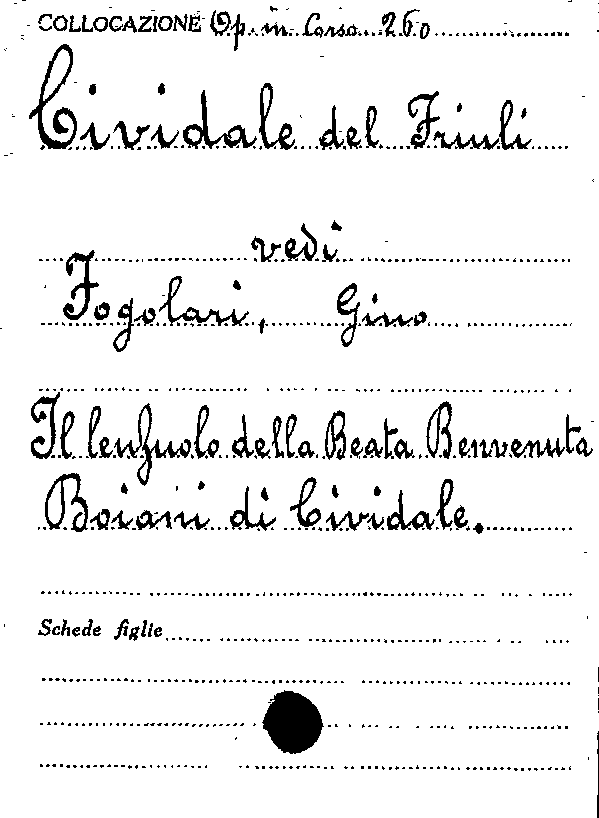 COLLOCAZIONE Op. in Corso. 260
Cividale del Friuli
vedi
Fogolari, Gino
Il lenzuolo della Beata Benvenuta
Boiani di Cividale.
Schede figlie